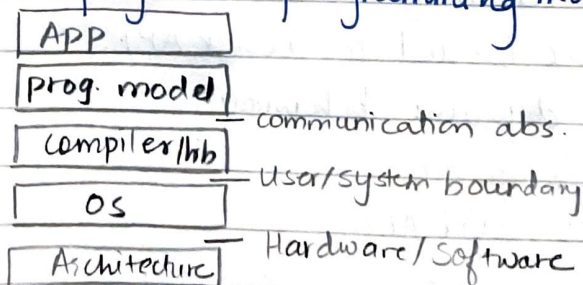 App
prog. model
communication abs.
compiler/lib
User/system boundary
OS
Hardware/Software
Architecture